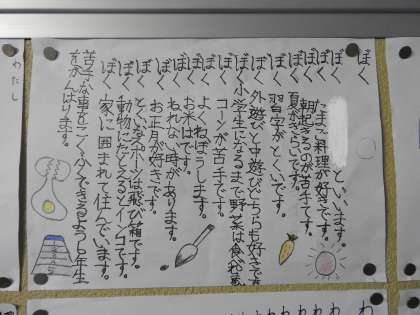 ぼく
ぼく といいます。
ぼく たまご料理が好きです。
ぼく 朝起きるのが苦手です。
ぼく 夏がきらいです。
ぼく 習字がとくいです。
ぼく 外遊びと中遊びどっちも好きです
ぼく 小学生になるまで野菜は食べま
ぼく コーンが苦手です。
ぼく よくねぼうします。
ぼく お米はです。
ぼく ねれない時があります。
ぼく お正月が好きです。
ぼく とくいなスポーツは飛び箱です。
ぼく 動物にたとえるとインコです。
ぼく 家に囲まれて住んでいます。
苦手な事をこくふくできるよう5年生
をがんばります。
わたし